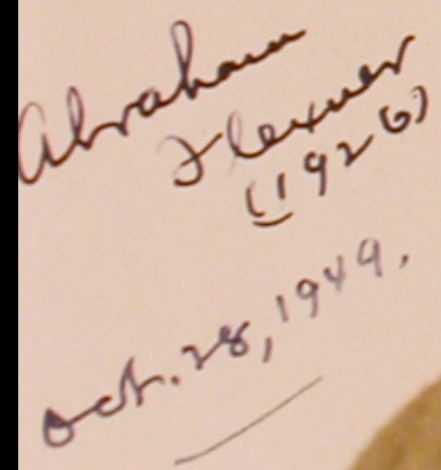 Abraham
Flexner
(1926)
Oct. 28, 1949.